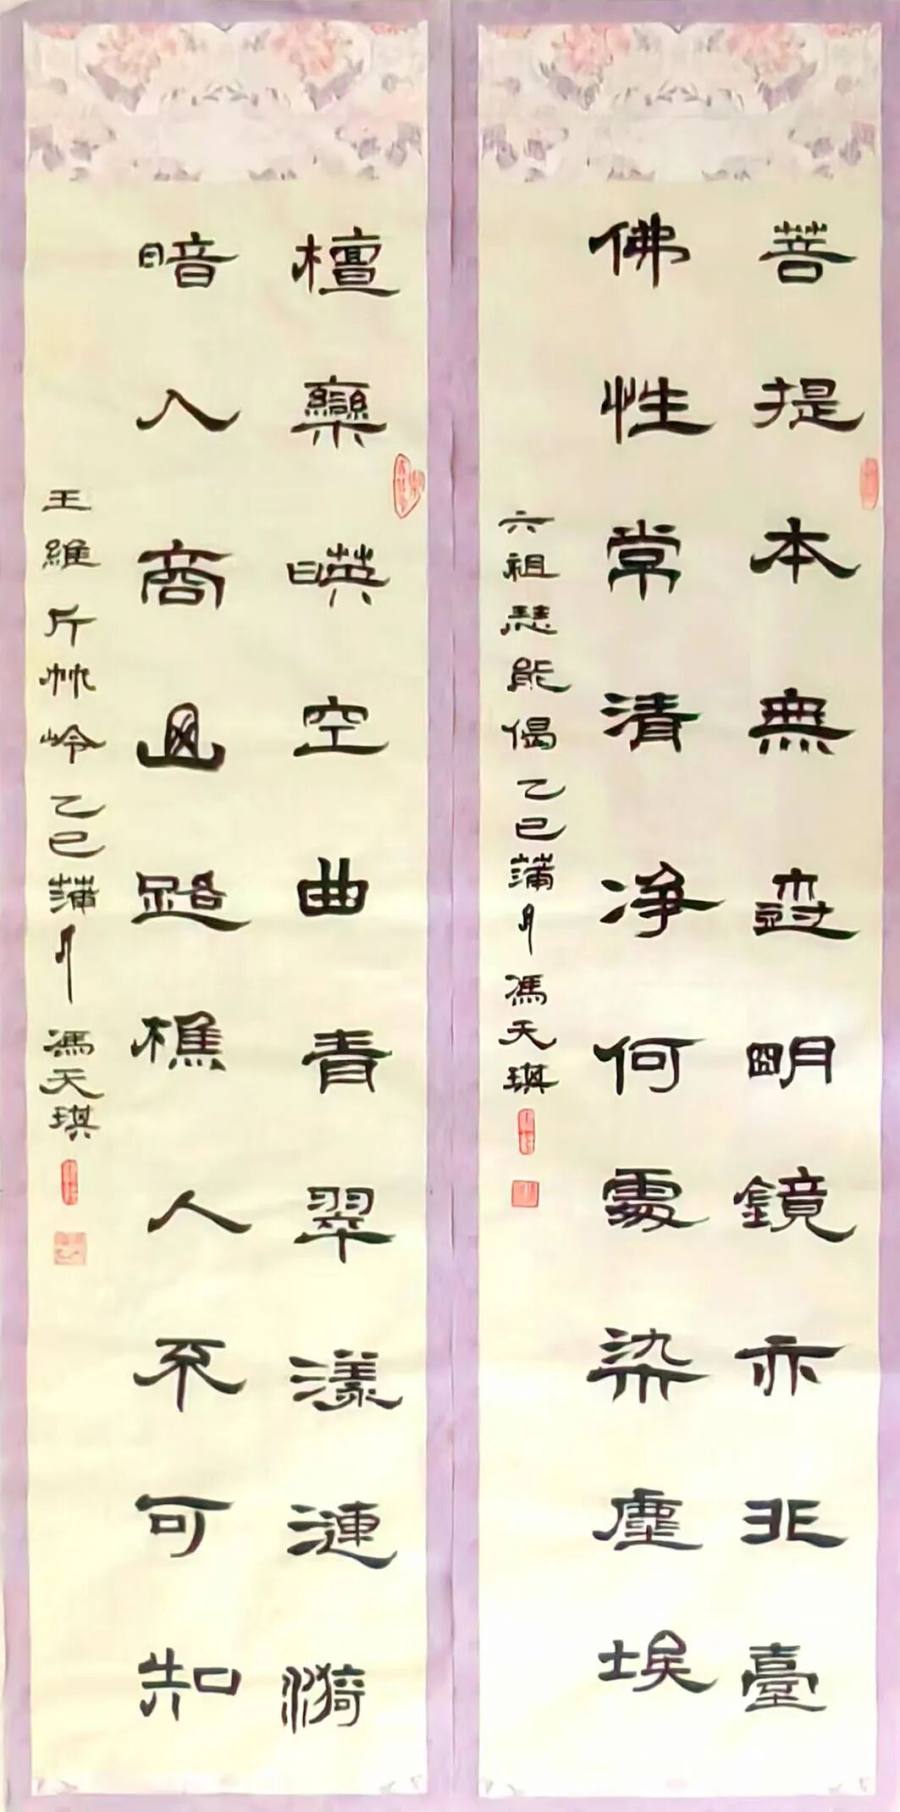 菩提本無尌明鏡亦非臺
佛性常清净何處染塵埃
六祖慧能偈乙巳蒲月馮天琪
檀欒暎空曲青翠漾漣漪
暗入商山路樵人不可知
王維斤竹岭乙巳蒲月馮天琪